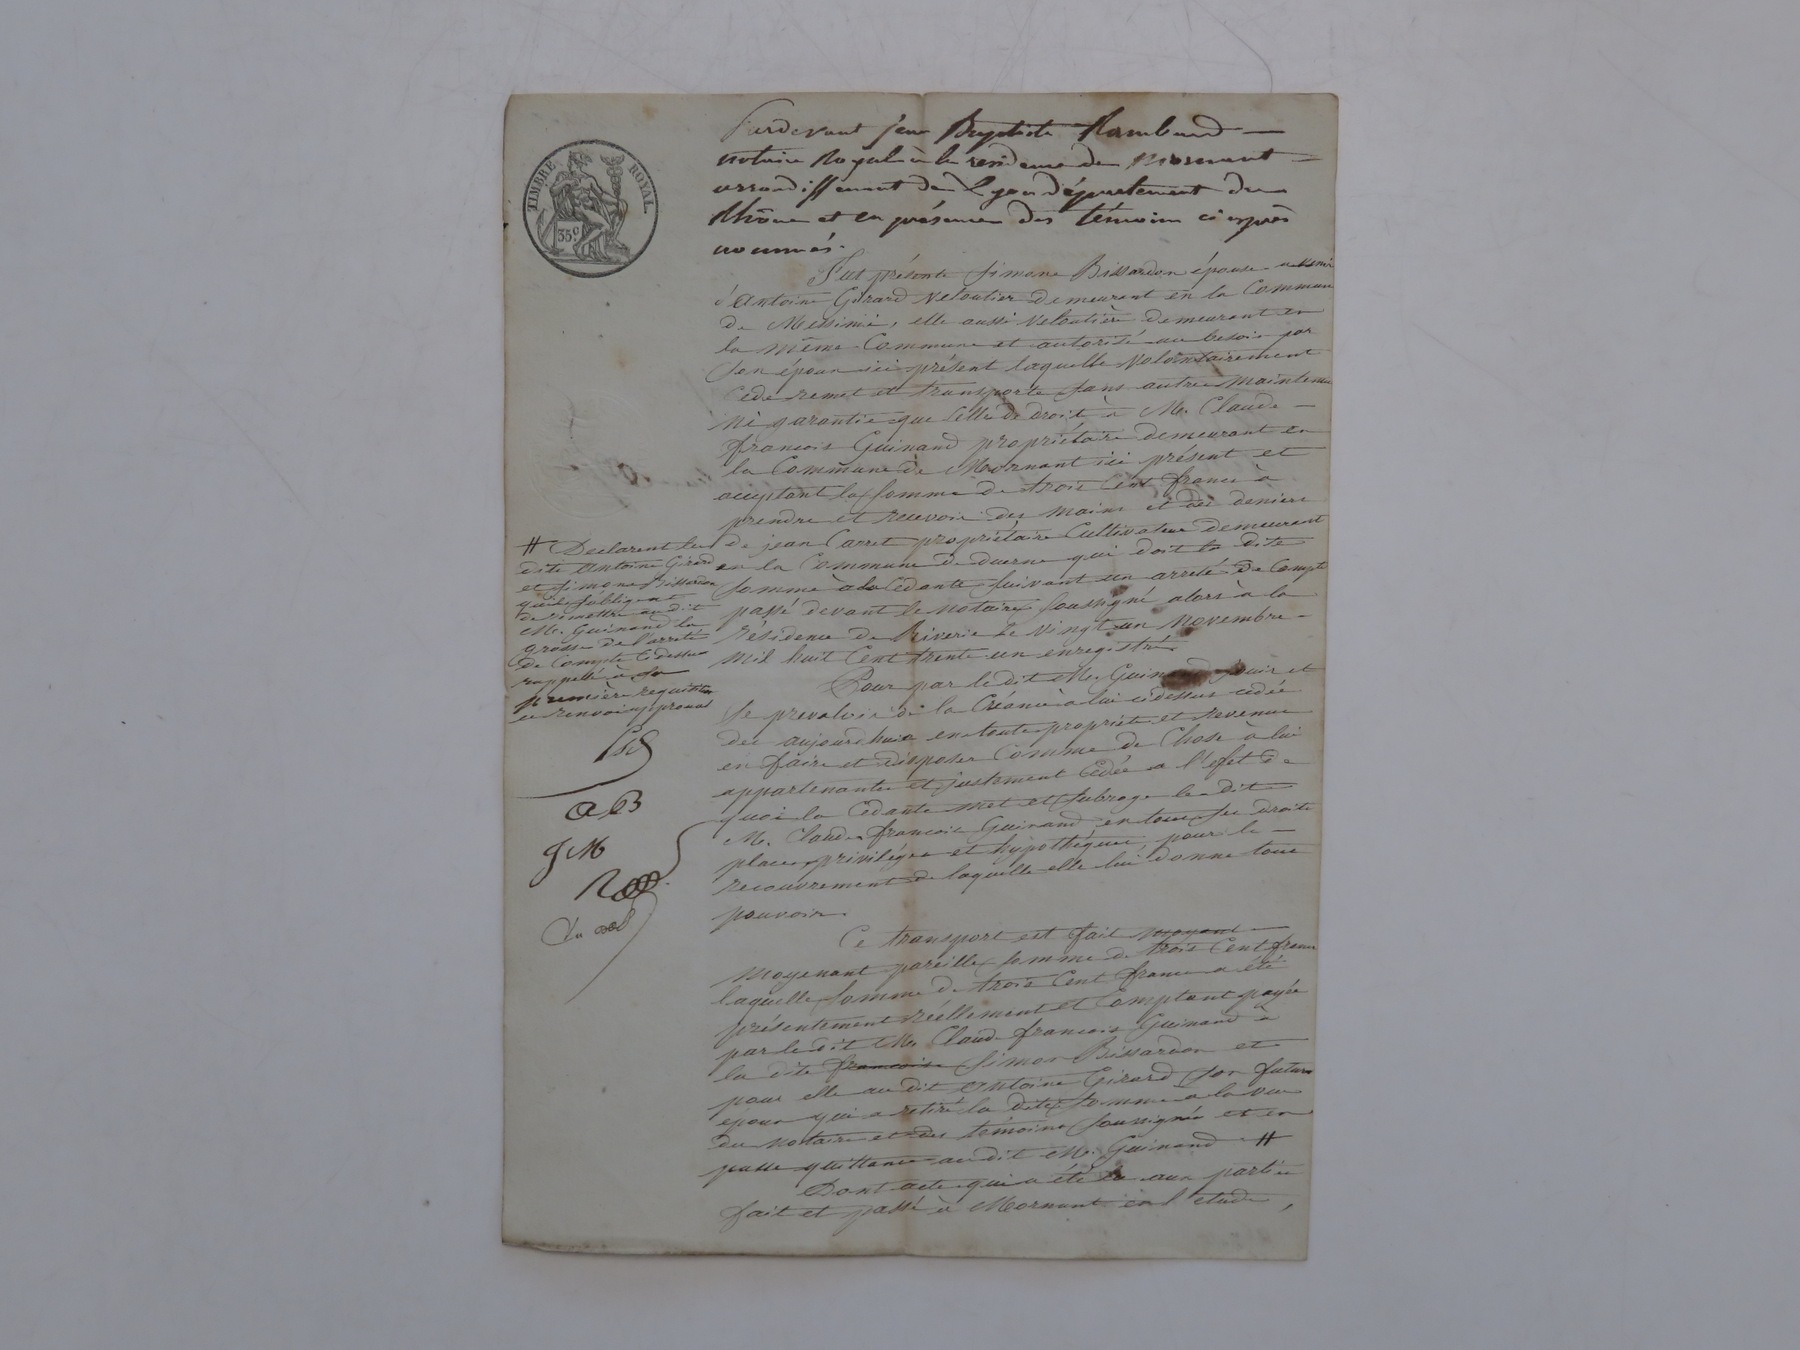 TIMBRE ROYAL.
35c
Pardevant jean Baptiste Rambaud —
notaire Royal à la residence de Mornant —
arrondissement de Lyon département du
Rhône et en présence des témoins ci après
nommés.
Fut présente Simone Bissardon épouse
d'Antoine Girard veloutier demeurant en la Commune
de Messimi, elle aussi veloutière demeurant en
la même Commune et autorisé au besoin par
son époux ici présent laquelle volontairement
Cede remet et transporte sans autre maintenue
ni garantie que Celle de droit à M. Claude —
françois Guinand propriétaire demeurant en
la Commune de Mornant ici présent et
acceptant la somme de trois Cent francs à
prendre et recevoir des mains et des deniers
de jean Carret propriétaire Cultivateur demeurant
en la Commune de duerne qui doit la dite
somme à la Cédante suivant un arreté de Compte
passé devant le notaire soussigné alors à la
résidence de Riverie le vingt un novembre —
mil huit Cent trente un enregistré.
Pour par le dit M. Guinand jouir et
se prevaloir de la Créance à lui cidessus cedée
des aujourdhui en toute propriété et revenu
en faire et disposer Comme de Chose à lui
appartenante et justement Cedée a l'efet de
quoi la Cédante met et subroge le dit
M. Claude françois Guinand en tous ses droits
place privilèges et hypothèques pour le —
recouvrement de laquelle elle lui donne tous
pouvoirs.
Ce transport est fait moyenant —
moyenant pareille somme de trois Cent francs
laquelle somme de trois Cent francs a été
présentement réellement et Comptant payée
par le dit M. Claude françois Guinand à
la dite francoise Simon Bissardon et
pour elle au dit Antoine Girard son futur
époux qui a retiré la dite somme a la vue
du notaire et des témoins soussignés et en
passe quittance au dit M. Guinand #
Dont acte qui a été lu aux parties
fait et passé à Mornant en l'etude,
# Declarent les
dits Antoine Girard
et Simone Bissardon
quils s'obligent
de remettre au dit
M. Guinand la
grosse de l'arreté
de Compte Cidessus
rappellé à sa
première requisition
ce renvoi approuvé
a B
g M